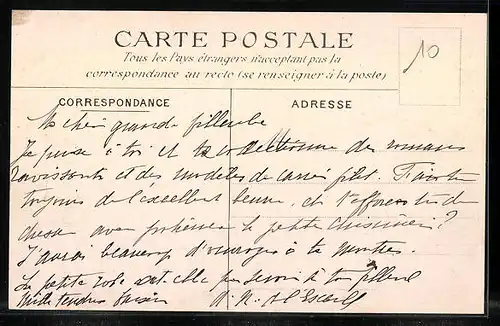 CARTE POSTALE
10
Tous les Pays étrangers n'acceptant pas la
correspondance au recto (se renseigner à la poste)
CORRESPONDANCE
ADRESSE
Ma chère grande fillette
Je pense à toi et te collectionne des romans
ravissants et des modèles de carré filet. Fais
toujours de l'excellent beurre, et
dresse avec la petite cuisinière?
J'aurai beaucoup d'ouvrages à te montrer.
La petite robe est-elle pu servir à ton filleul
Mille tendres